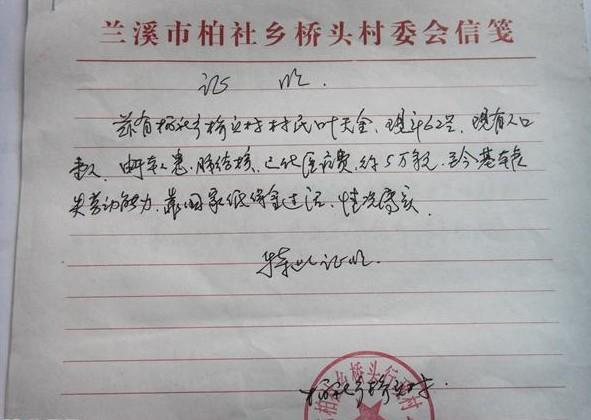 兰溪市柏社乡桥头村委会信笺
证 明.
兹有柏社乡桥头村村民叶天金、现年62岁、现有人口
人、由于本人患肺结核、已化医疗费、约5万元、至今基本丧
失劳动能力、靠国家低保金过活、情况属实.
特此证明.
柏社乡桥头村